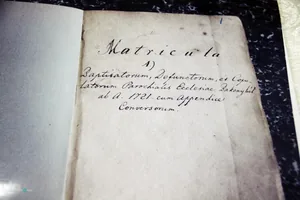 Matricula
1)
Baptisatorum, Defunctorum, et Copu
latorum Parochialis Ecclesiae
ab A. 1721. cum Appendice
Conversorum